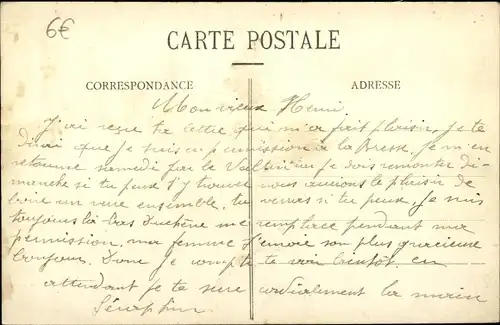 6€
CARTE POSTALE
CORRESPONDANCE
ADRESSE
Mon vieux Henri
J'ai reçu ta lettre qui m'a fait plaisir, je te
dirai que je suis en permission à la Bresse, je m'en
retourne samedi par le je dois remonter di-
manche si tu peux t'y trouver nous aurions le plaisir de
boire un verre ensemble, tu verras si tu peux, je suis
toujours là bas Duchêne me remplace pendant ma
permission, ma femme t'envoie son plus gracieux
bonjour. Donc je compte te voir bientôt, en
attendant je te serre cordialement la main
Séraphin